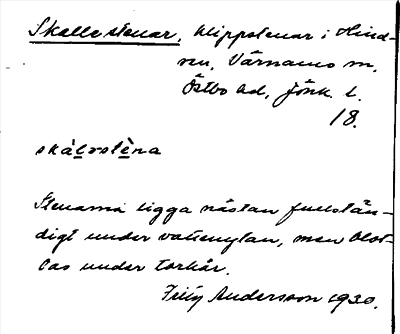 Skallestenar, klippstenar i Hind-
sen. Värnamo sn.
Östbo hd, Jönk. l.
18.
skàlɛstèna
Stenarna ligga nästan fullstän-
digt under vattenytan, men blot-
tas under torkår.
Andersson 1930.